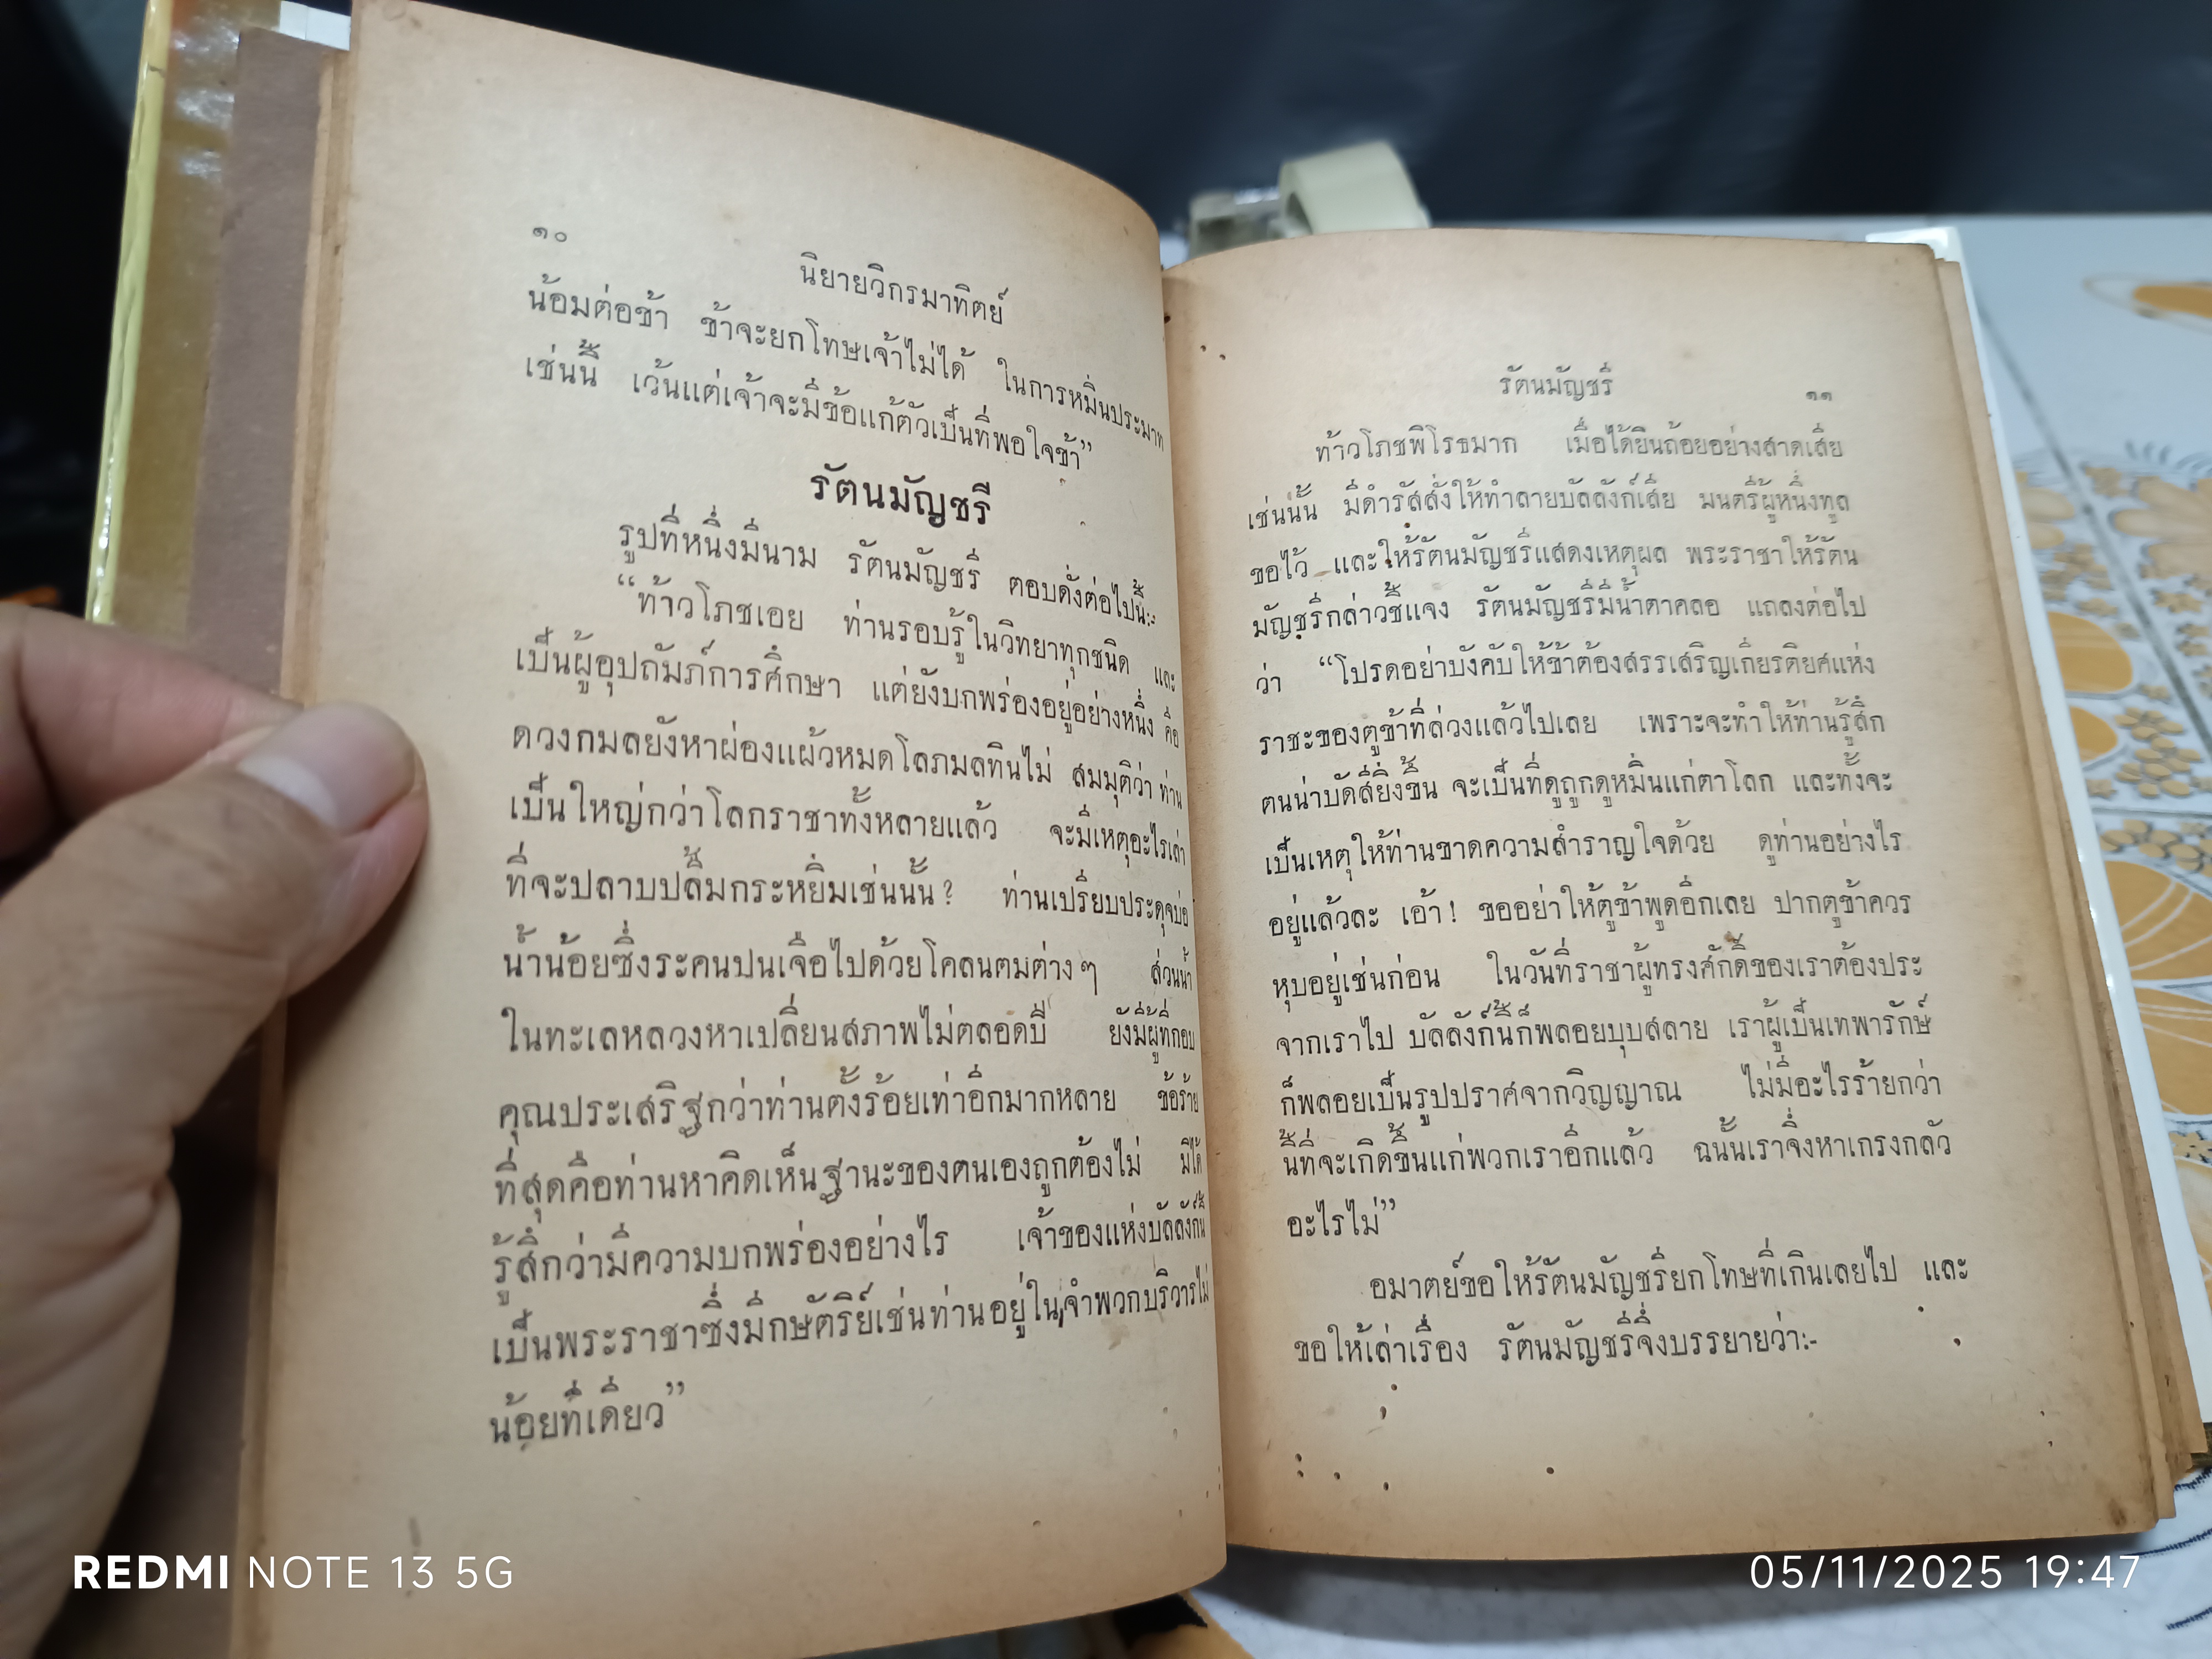 ๑๐
นิยายวิกรมาทิตย์
น้อมต่อข้า ข้าจะยกโทษเจ้าไม่ได้ ในการหมิ่นประมาท
เช่นนี้ เว้นแต่เจ้าจะมีข้อแก้ตัวเป็นที่พอใจข้า”
รัตนมัญชรี
รูปที่หนึ่งมีนาม รัตนมัญชรี ตอบดั่งต่อไปนี้:-
“ท้าวโภชเอย ท่านรอบรู้ในวิทยาทุกชนิด และ
เป็นผู้อุปถัมภ์การศึกษา แต่ยังบกพร่องอยู่อย่างหนึ่ง คือ
ดวงกมลยังหาผ่องแผ้วหมดโลภมลทินไม่ สมมุติว่า ท่าน
เป็นใหญ่กว่าโลกราชาทั้งหลายแล้ว จะมีเหตุอะไรเล่า
ที่จะปลาบปลื้มกระหยิ่มเช่นนั้น? ท่านเปรียบประดุจบ่อ
น้ำน้อยซึ่งระคนปนเจือไปด้วยโคลนตมต่าง ๆ ส่วนน้ำ
ในทะเลหลวงหาเปลี่ยนสภาพไม่ตลอดปี ยังมีผู้ที่กอบ
คุณประเสริฐกว่าท่านตั้งร้อยเท่าอีกมากหลาย ข้อร้าย
ที่สุดคือท่านหาคิดเห็นฐานะของตนเองถูกต้องไม่ มิได้
รู้สึกว่ามีความบกพร่องอย่างไร เจ้าของแห่งบัลลังก์นี้
เป็นพระราชาซึ่งมีกษัตริย์เช่นท่านอยู่ในจำพวกบริวารไม่
น้อยทีเดียว”
รัตนมัญชรี
๑๑
ท้าวโภชพิโรธมาก เมื่อได้ยินถ้อยอย่างสาดเสีย
เช่นนั้น มีดำรัสสั่งให้ทำลายบัลลังก์เสีย มนตรีผู้หนึ่งทูล
ขอไว้ และให้รัตนมัญชรีแสดงเหตุผล พระราชาให้รัตน
มัญชรีกล่าวชี้แจง รัตนมัญชรีมีน้ำตาคลอ แถลงต่อไป
ว่า “โปรดอย่าบังคับให้ข้าต้องสรรเสริญเกียรติยศแห่ง
ราชะของตูข้าที่ล่วงแล้วไปเลย เพราะจะทำให้ท่านรู้สึก
ตนน่าบัดสียิ่งขึ้น จะเป็นที่ดูถูกดูหมิ่นแก่ตาโลก และทั้งจะ
เป็นเหตุให้ท่านขาดความสำราญใจด้วย ดูท่านอย่างไร
อยู่แล้วละ เอ้า! ขออย่าให้ตูข้าพูดอีกเลย ปากตูข้าควร
หุบอยู่เช่นก่อน ในวันที่ราชาผู้ทรงศักดิ์ของเราต้องประ
จากเราไป บัลลังก์นี้ก็พลอยบุบสลาย เราผู้เป็นเทพารักษ์
ก็พลอยเป็นรูปปราศจากวิญญาณ ไม่มีอะไรร้ายกว่า
นี้ที่จะเกิดขึ้นแก่พวกเราอีกแล้ว ฉนั้นเราจึงหาเกรงกลัว
อะไรไม่”
อมาตย์ขอให้รัตนมัญชรียกโทษที่เกินเลยไป และ
ขอให้เล่าเรื่อง รัตนมัญชรีจึ่งบรรยายว่า:-
REDMI NOTE 13 5G
05/11/2025 19:47